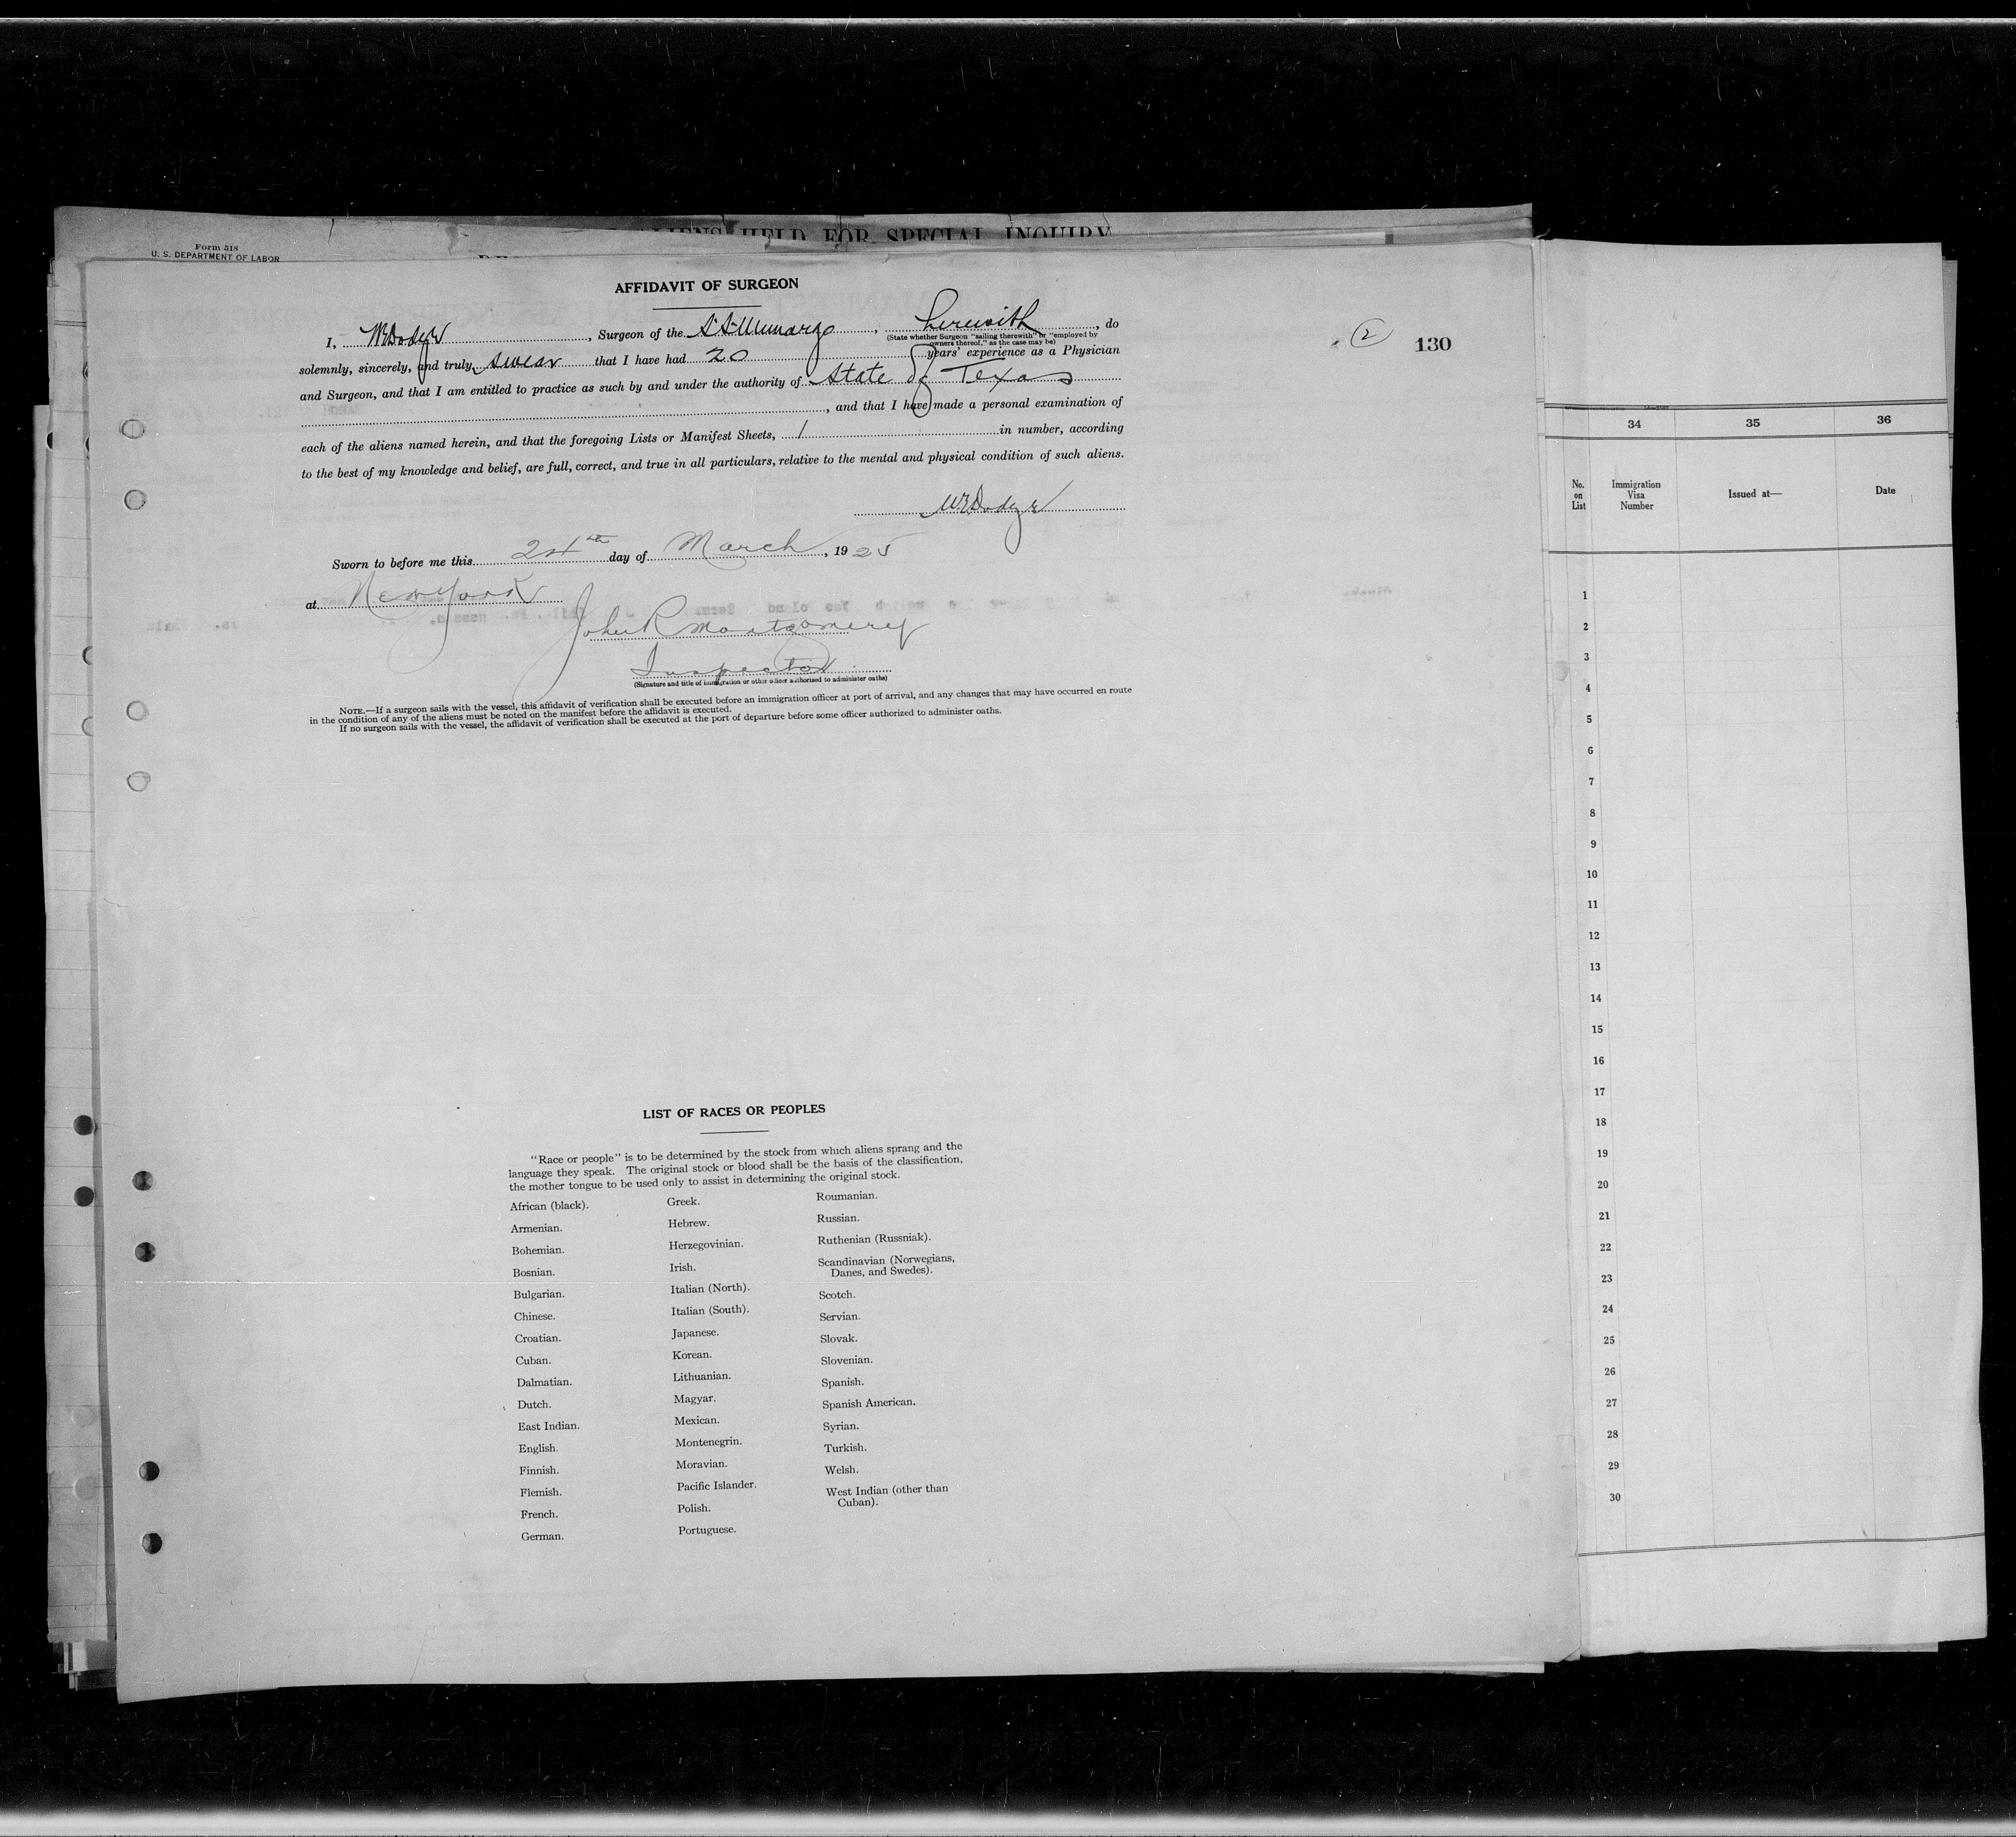 ALIENS HELD FOR SPECIAL INQUIRY
Form 518
U. S. DEPARTMENT OF LABOR
AFFIDAVIT OF SURGEON
2
130
I, , Surgeon of the S.S. Munargo , herewith , do
(State whether Surgeon "sailing therewith" or "employed by
owners thereof," as the case may be)
solemnly, sincerely, and truly swear that I have had 20 years' experience as a Physician
and Surgeon, and that I am entitled to practice as such by and under the authority of State of Texas
, and that I have made a personal examination of
each of the aliens named herein, and that the foregoing Lists or Manifest Sheets, 1 in number, according
to the best of my knowledge and belief, are full, correct, and true in all particulars, relative to the mental and physical condition of such aliens.
Sworn to before me this 24th day of March, 1925
at New York
John R Montgomery
Inspector
(Signature and title of immigration or other officer authorized to administer oaths)
NOTE.—If a surgeon sails with the vessel, this affidavit of verification shall be executed before an immigration officer at port of arrival, and any changes that may have occurred en route
in the condition of any of the aliens must be noted on the manifest before the affidavit is executed.
If no surgeon sails with the vessel, the affidavit of verification shall be executed at the port of departure before some officer authorized to administer oaths.
LIST OF RACES OR PEOPLES
"Race or people" is to be determined by the stock from which aliens sprang and the
language they speak. The original stock or blood shall be the basis of the classification,
the mother tongue to be used only to assist in determining the original stock.
African (black).
Armenian.
Bohemian.
Bosnian.
Bulgarian.
Chinese.
Croatian.
Cuban.
Dalmatian.
Dutch.
East Indian.
English.
Finnish.
Flemish.
French.
German.
Greek.
Hebrew.
Herzegovinian.
Irish.
Italian (North).
Italian (South).
Japanese.
Korean.
Lithuanian.
Magyar.
Mexican.
Montenegrin.
Moravian.
Pacific Islander.
Polish.
Portuguese.
Roumanian.
Russian.
Ruthenian (Russniak).
Scandinavian (Norwegians,
Danes, and Swedes).
Scotch.
Servian.
Slovak.
Slovenian.
Spanish.
Spanish American.
Syrian.
Turkish.
Welsh.
West Indian (other than
Cuban).
34 35 36
No.
on
List
Immigration
Visa
Number
Issued at—
Date
1
2
3
4
5
6
7
8
9
10
11
12
13
14
15
16
17
18
19
20
21
22
23
24
25
26
27
28
29
30